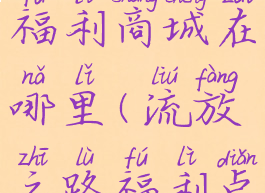 fú lì shāng chéng zài
福利商城在
nǎ lǐ liú fàng
哪里(流放
zhī lù fú lì diǎn
之路福利点